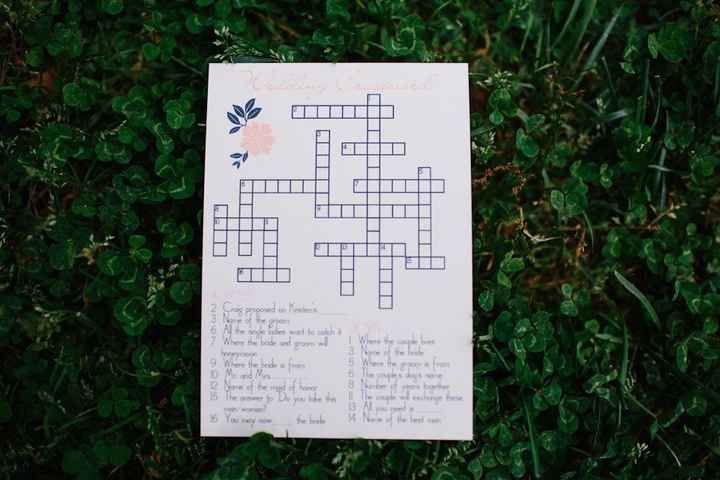 Wedding Crossword
2 Craig proposed on Kristen's
3 Name of the groom
6 All the single ladies want to catch it
7 Where the bride and groom will
honeymoon
9 Where the bride is from
10 Mr. and Mrs.
12 Name of the maid of honor
15 The answer to "Do you take this
man/woman?"
16 You may now ____ the bride
1 Where the couple lives
3 Name of the bride
5 Where the groom is from
6 The couple's dog's name
8 Number of years together
11 The couple will exchange these
13 All you need is ____
14 Name of the best man